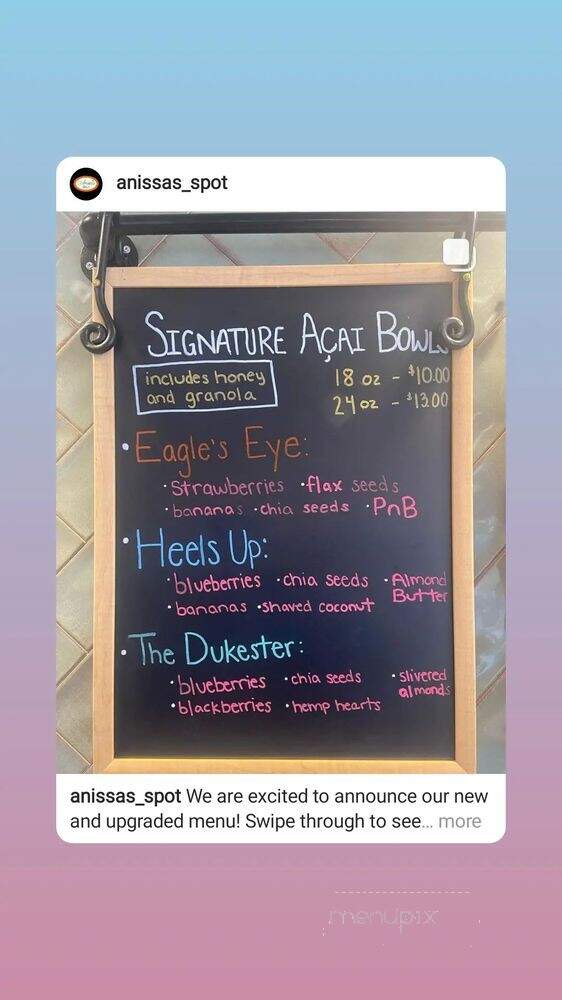 anissas_spot
SIGNATURE AÇAI BOWLS
includes honey
and granola
18 oz - $10.00
24 oz - $13.00
• Eagle's Eye:
• Strawberries • flax seeds
• bananas • chia seeds • PnB
• Heels Up:
• blueberries • chia seeds • Almond
Butter
• bananas • shaved coconut
• The Dukester:
• blueberries • chia seeds • slivered
almonds
• blackberries • hemp hearts
anissas_spot We are excited to announce our new
and upgraded menu! Swipe through to see... more
menupix